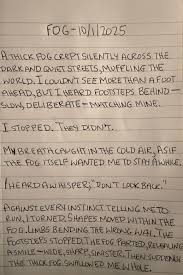 FOG-10/1/2025
A THICK FOG CREPT SILENTLY ACROSS THE
DARK AND QUIET STREETS, MUFFLING THE
WORLD. I COULDN'T SEE MORE THAN A FOOT
AHEAD, BUT I HEARD FOOTSTEPS BEHIND—
SLOW, DELIBERATE—MATCHING MINE.
I STOPPED. THEY DIDN'T.
MY BREATH CAUGHT IN THE COLD AIR, AS IF
THE FOG ITSELF WANTED ME TO STAY AWHILE.
I HEARD A WHISPER; "DON'T LOOK BACK."
AGAINST EVERY INSTINCT TELLING ME TO
RUN, I TURNED. SHAPES MOVED WITHIN THE
FOG. LIMBS BENDING THE WRONG WAY. THE
FOOTSTEPS STOPPED. THE FOG PARTED, REVEALING
A SMILE—WIDE, SHARP, SINISTER. THEN SUDDENLY
THE THICK FOG SWALLOWED ME WHOLE.